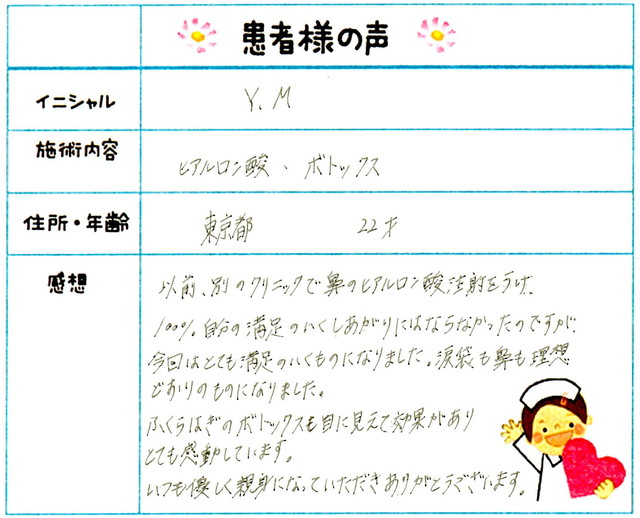 患者様の声
イニシャル Y.M
施術内容 ヒアルロン酸、ボトックス
住所・年齢 東京都 22才
感想 以前、別のクリニックで鼻のヒアルロン酸注射をうけ、
100%自分の満足のいくしあがりにはならなかったのですが
今回はとても満足のいくものになりました。涙袋も鼻も理想
どおりのものになりました。
ふくらはぎのボトックスも目に見えて効果があり
とても感動しています。
いつも優しく親身になっていただきありがとうございます。